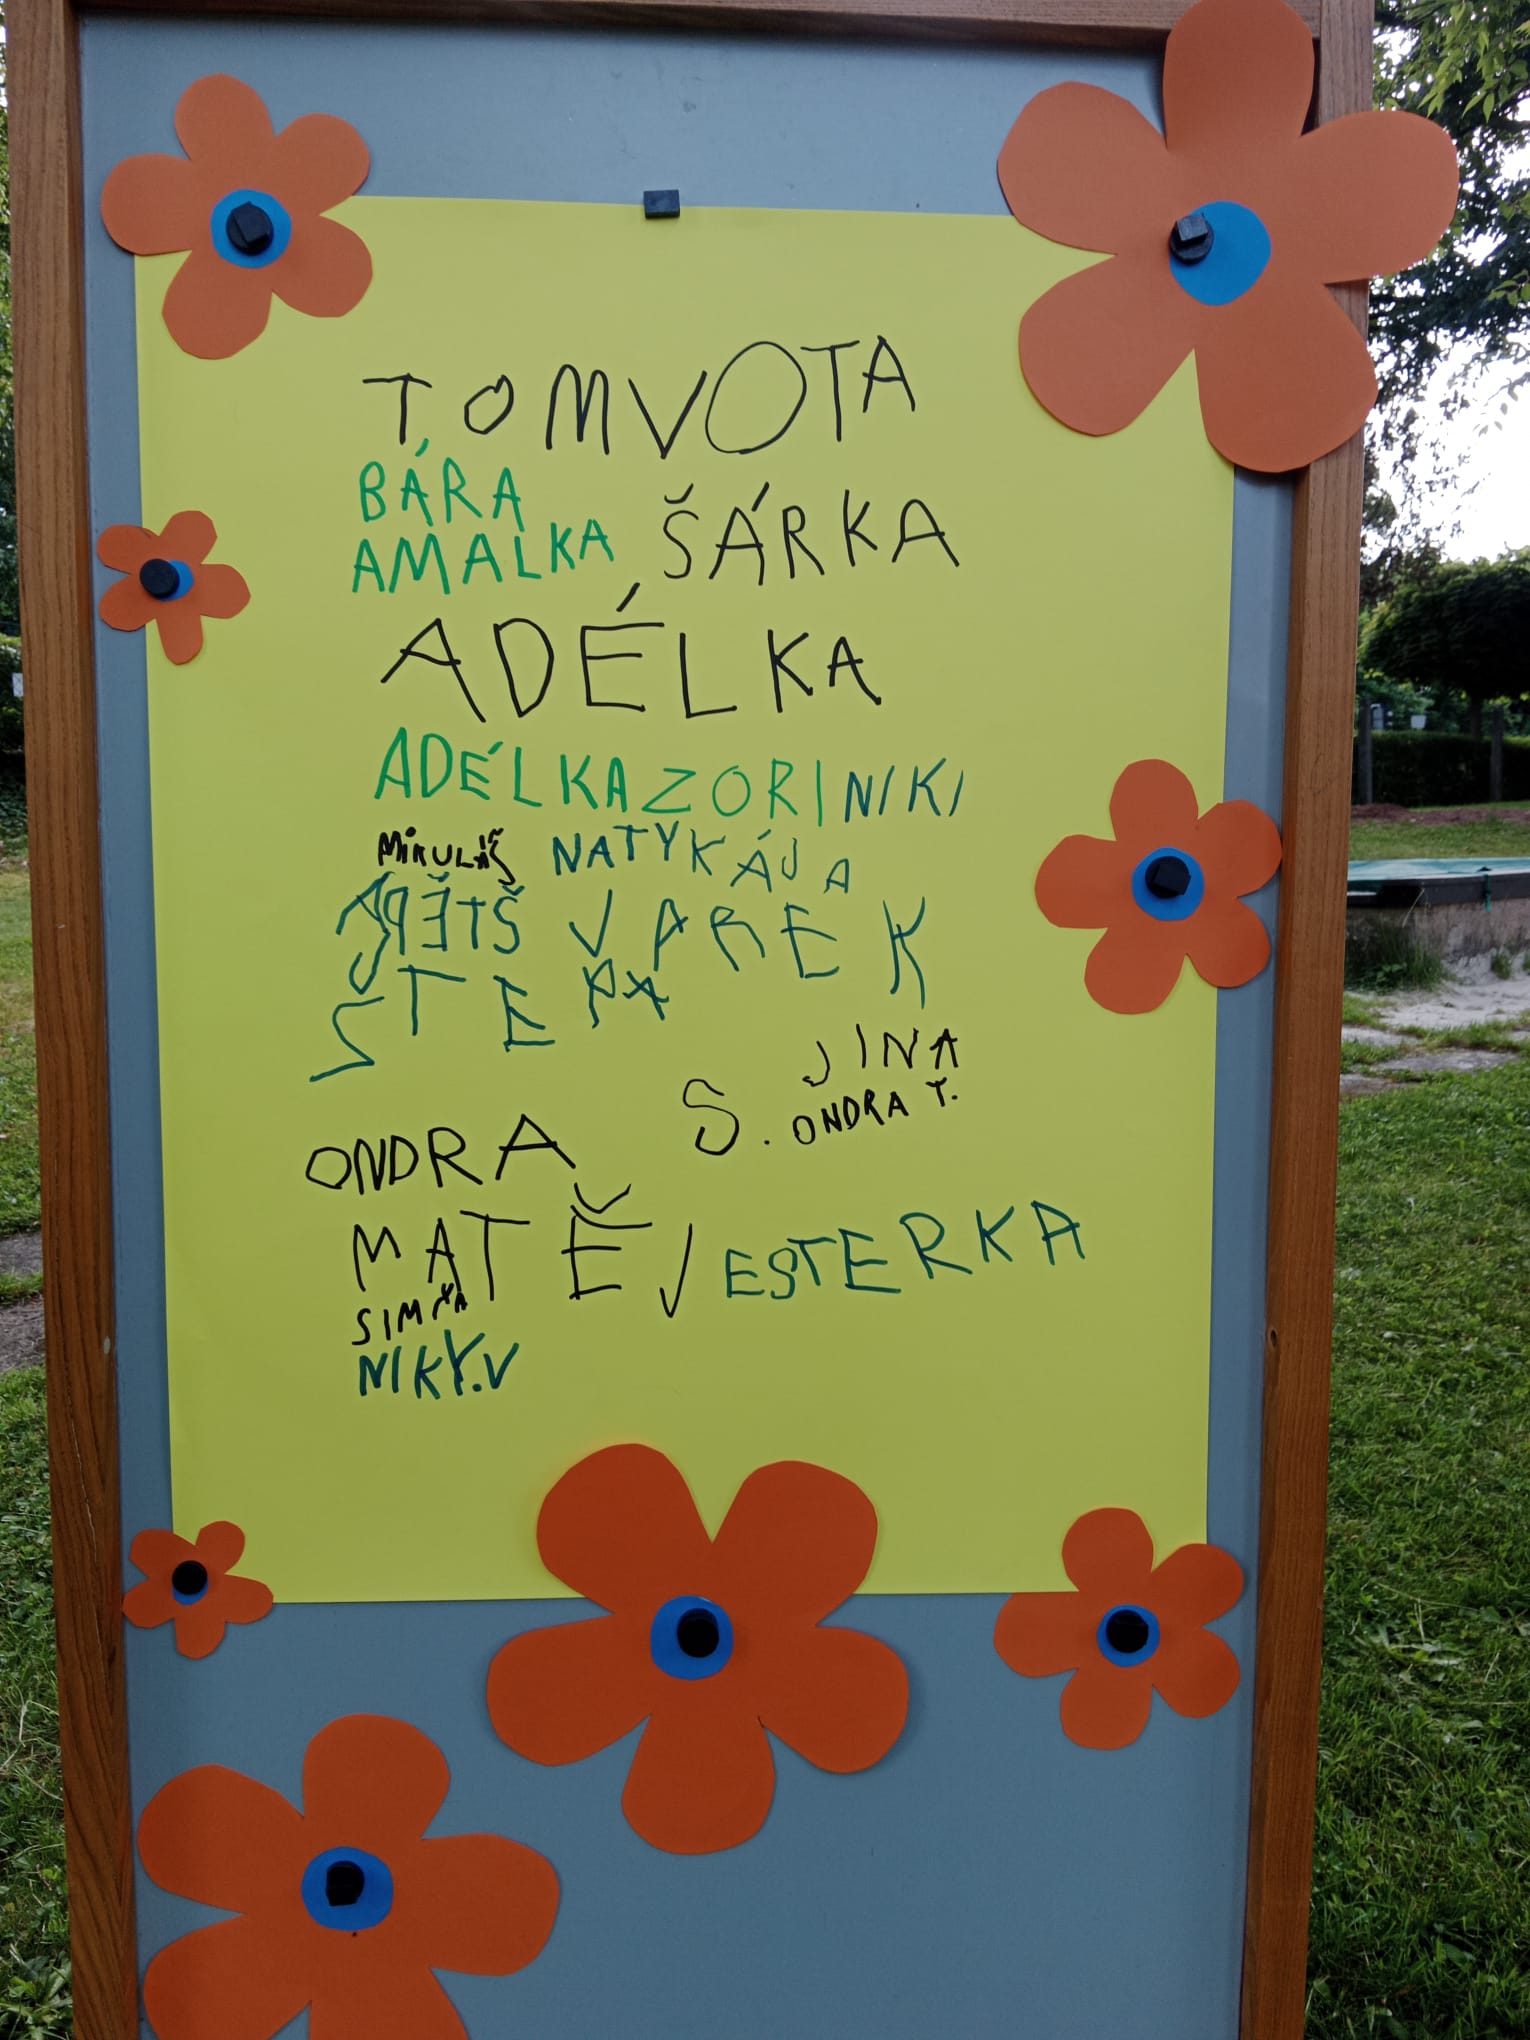 TOMVOTA
BÁRA
AMALKA ŠÁRKA
ADÉLKA
ADÉLKAZORINIKI
MIKULÁŠ NATYKÁJA
VAREK
STEPA
JINA
ONDRA S. ONDRA T.
MATĚJ ESTERKA
SIMČA
NIKY.V